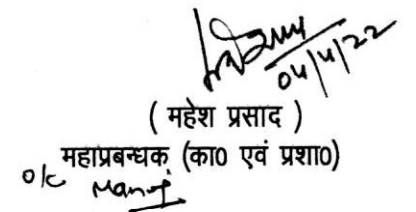 04/4/22
( महेश प्रसाद )
महाप्रबन्धक (का0 एवं प्रशा0)
o/c